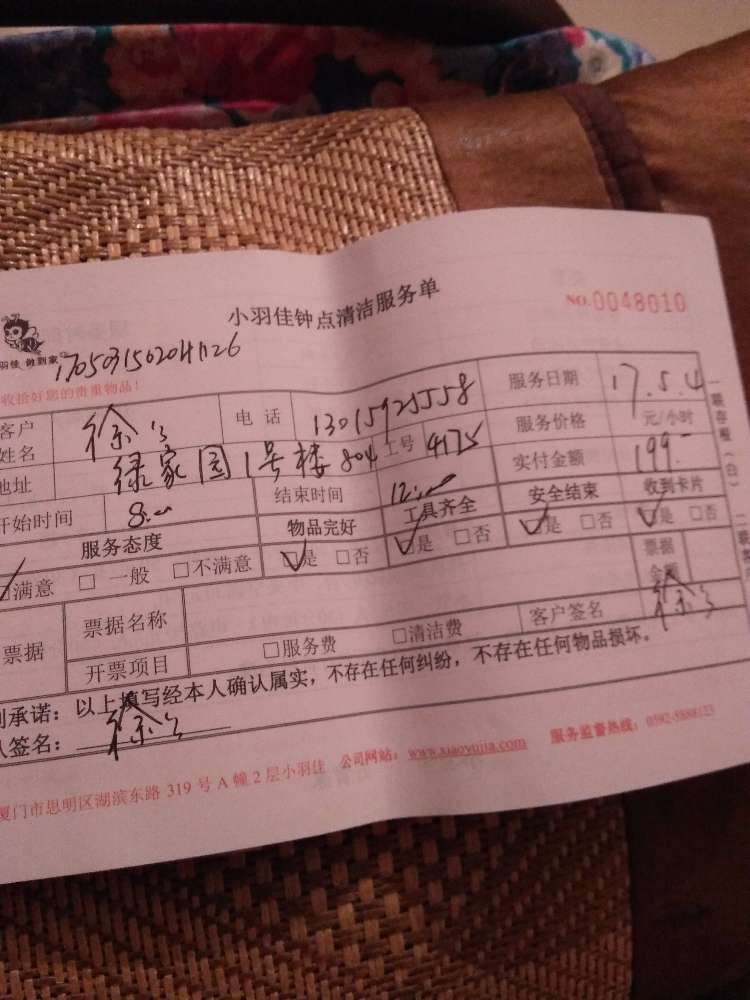 小羽佳钟点清洁服务单
NO.0048010
羽佳 做到家
收拾好您的贵重物品！
客户姓名 电话 13015925558 服务日期 17.5.4
地址 绿家园1号楼804 工号 4175 服务价格 元/小时
开始时间 8:00 结束时间 12:00 实付金额 199.-
服务态度 物品完好 工具齐全 安全结束 收到卡片
☑满意 □ 一般 □不满意 ☑是 □否 ☑是 □否 ☑是 □否 ☑是 □否
票据 票据名称 票据金额
开票项目 □服务费 □清洁费 客户签名
承诺：以上填写经本人确认属实，不存在任何纠纷，不存在任何物品损坏。
人签名：
厦门市思明区湖滨东路 319 号 A 幢 2 层小羽佳 公司网站：www.xiaoyujia.com 服务监督热线：0592-5888123